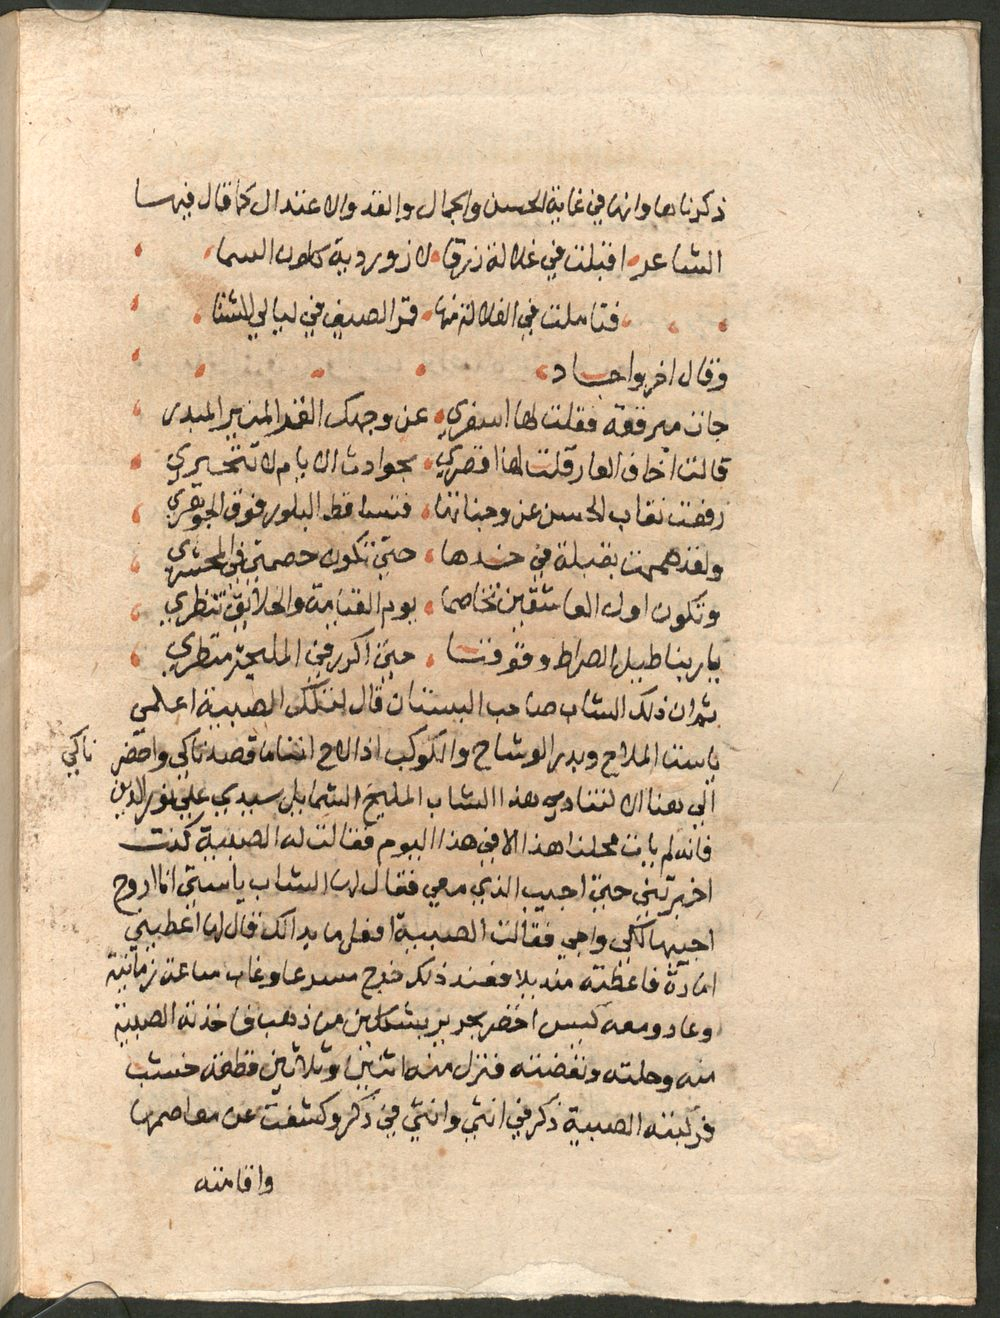 ذكرناها وانها في غاية الحسن والجمال والقد والاعتدال كما قال فيها
الشاعر اقبلت في غلالة زرقا لازوردية كلون السما
فتاملت في الغلالة منها قمر الصيف في ليالي الشتا
وقال اخر واجاد
جات مبرقعة فقلت لها اسفري عن وجهك القمر المنير المبدر
قالت اخاف العار قلت لها اقصري بحوادث الايام لا تتحيري
رفعت نقاب الحسن عن وجناتها فتساقط البلور فوق الجوهري
ولقد هممت بقبلة في خدها حتي تكون خصمتي في المحشري
وتكون اول العاشقين تخاصما يوم القيامة والخلايق تنظري
يا ربنا طيل الصراط وقوفنا حتي اكرر في المليحة منظري
ثم ان ذلك الشاب صاحب البستان قال لتلك الصبية اعلمي
يا ست الملاح وبدر الوشاح والكوكب اذا لاح اننا ما قصدناكي واحضر
ناكي
الي هنا الا لتنادمي هذا الشاب المليح الشمايل سيدي علي نور الدين
فانه لم يات محلنا هذا الا في هذا اليوم فقالت له الصبية كنت
اخبرتني حتي اجيب الذي معي فقال لها الشاب يا ستي انا اروح
اجيبها لكي واجي فقالت الصبية افعل ما بدالك قال لها اعطيني
امارة فاعطته منديلا فعند ذلك خرج مسرعا وغاب ساعة زمانية
وعاد ومعه كيس اخضر حرير بشكلين من ذهب فاخذته الصبية
منه وحلته ونفضته فنزل منه اثنين وثلاثين قطعة خشب
فركبته الصبية ذكر في انثي وانثي في ذكر وكشفت عن معاصمها
واقامته